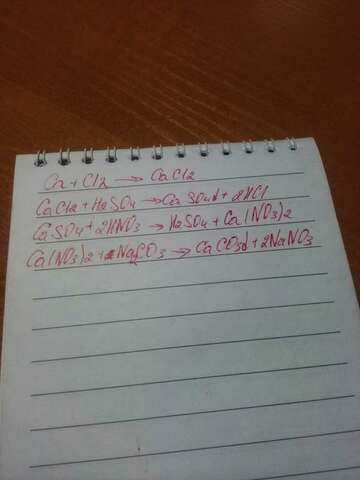 Ca + Cl2 → CaCl2
CaCl2 + H2SO4 → CaSO4↓ + 2HCl
CaSO4 + 2HNO3 → H2SO4 + Ca(NO3)2
Ca(NO3)2 + Na2CO3 → CaCO3↓ + 2NaNO3